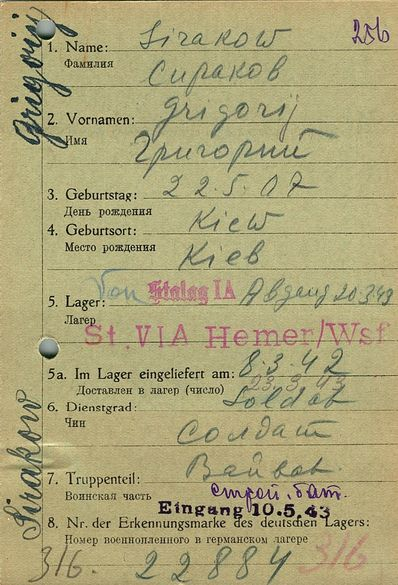 Grigorij
Sirakow
1. Name: Sirakow 256
Фамилия Сираков
2. Vornamen: Grigorij
Имя Григорий
3. Geburtstag: 22.5.07
День рождения
4. Geburtsort: Kiew
Место рождения Киев
von Stalag IA Abgang 20.3.43
5. Lager:
Лагер
St. VIA Hemer/Wsf
5a. Im Lager eingeliefert am: 8.3.42
Доставлен в лагер (число) 23.3.43
6. Dienstgrad: Soldat
Чин Солдат
7. Truppenteil:
Воинская часть строй. бат.
Eingang 10.5.43
8. Nr. der Erkennungsmarke des deutschen Lagers:
Номер военнопленного в германском лагере
316. 22884 316